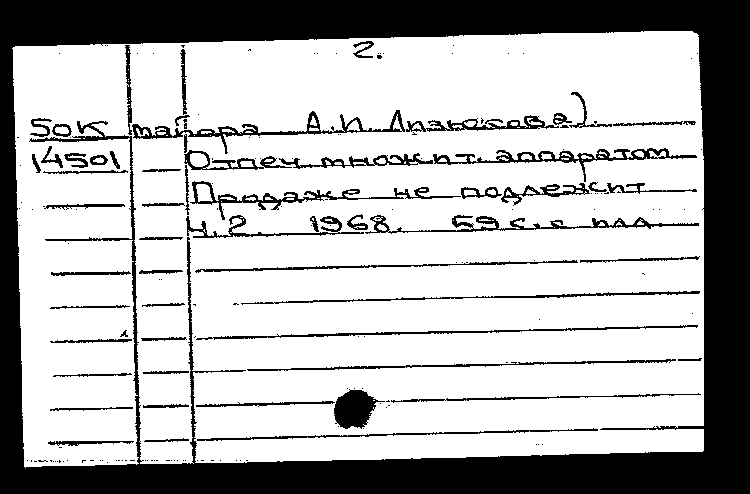 2.
50К майора А.И. Лизюкова).
14501 Отпеч. множит. аппаратом
Продаже не подлежит
Ч.2. 1968. 59 с. с илл.